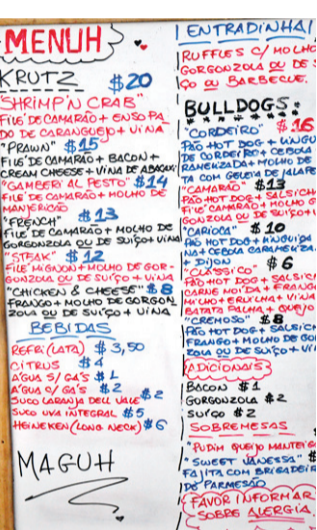 MENUH
KRUTZ $20
"SHRIMP'N CRAB"
FILÉ DE CAMARÃO + ENSOPA
DO DE CARANGUEJO + VINA
"PRAWN" $15
FILÉ DE CAMARÃO + BACON +
CREAM CHEESE + VINA DE ABACAXI
"GAMBERI AL PESTO" $14
FILÉ DE CAMARÃO + MOLHO DE
MANJERICÃO
"FRENCH" $13
FILÉ DE CAMARÃO + MOLHO DE
GORGONZOLA OU DE SUIÇO + VINA
"STEAK" $12
FILÉ MIGNON + MOLHO DE GOR-
GONZOLA OU DE SUIÇO + VINA
"CHICKEN & CHEESE" $8
FRANGO + MOLHO DE GORGON
ZOLA OU DE SUIÇO + VINA
BEBIDAS
REFRI (LATA) $3,50
CITRUS $4
ÁGUA S/ GÁS $1
ÁGUA C/ GÁS $2
SUCO LARANJA DELL VALE $2
SUCO UVA INTEGRAL $5
HEINEKEN (LONG NECK) $6
MAGUH
ENTRADINHA
RUFFLES C/ MOLHO
GORGONZOLA OU DE S
ÇO OU BARBECUE.
BULLDOGS:
"CORDEIRO" $16
PÃO HOT DOG + LINGUI
DE CORDEIRO + CEBOLA
RAMELIZADA + MOLHO DE
TA COM GELEIA DE JALAPE
"CAMARÃO" $13
PÃO HOT DOG + SALSICH
FILÉ CAMARÃO + MOLHO G
GONZOLA OU DE SUIÇO + V
"CARIOCA" $10
PÃO HOT DOG + LINGUIÇA
NA + CEBOLA CARAMELIZA
+ DIJON
"CLÁSSICO" $6
PÃO HOT DOG + SALSIC
CARNE MOIDA + FRANGO
MILHO + ERVILHA + VINA
BATATA PALHA + QUEIJO
"CREMOSO" $8
PÃO HOT DOG + SALSIC
FRANGO + MOLHO DE GOR
ZOLA OU DE SUIÇO + VI
ADICIONAIS
BACON $1
GORGONZOLA $2
SUIÇO $2
SOBREMESAS
"PUDIM QUEIJO MANTEIG
"SWEET VANESSA" $
FATITA COM BRIGADEIR
DE PARMESÃO
FAVOR INFORMAR
SOBRE ALERGIA.